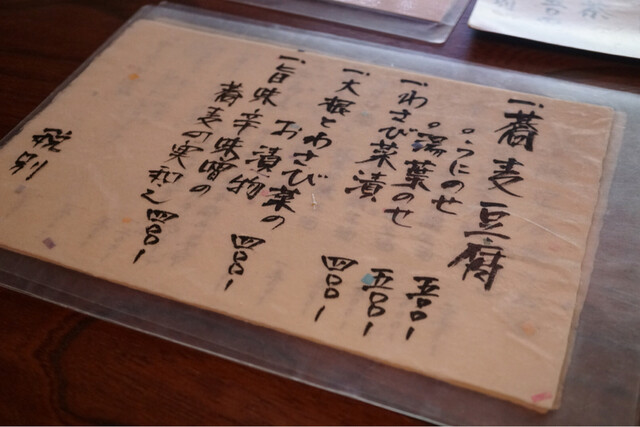 一、蕎麦豆腐
。うにのせ 五〇〇ー
。湯葉のせ 五〇〇ー
一、わさび菜漬 四〇〇ー
一、大根とわさび菜の
お漬物 四〇〇ー
一、旨味辛味噌の
蕎麦の実和え 四〇〇ー
税別